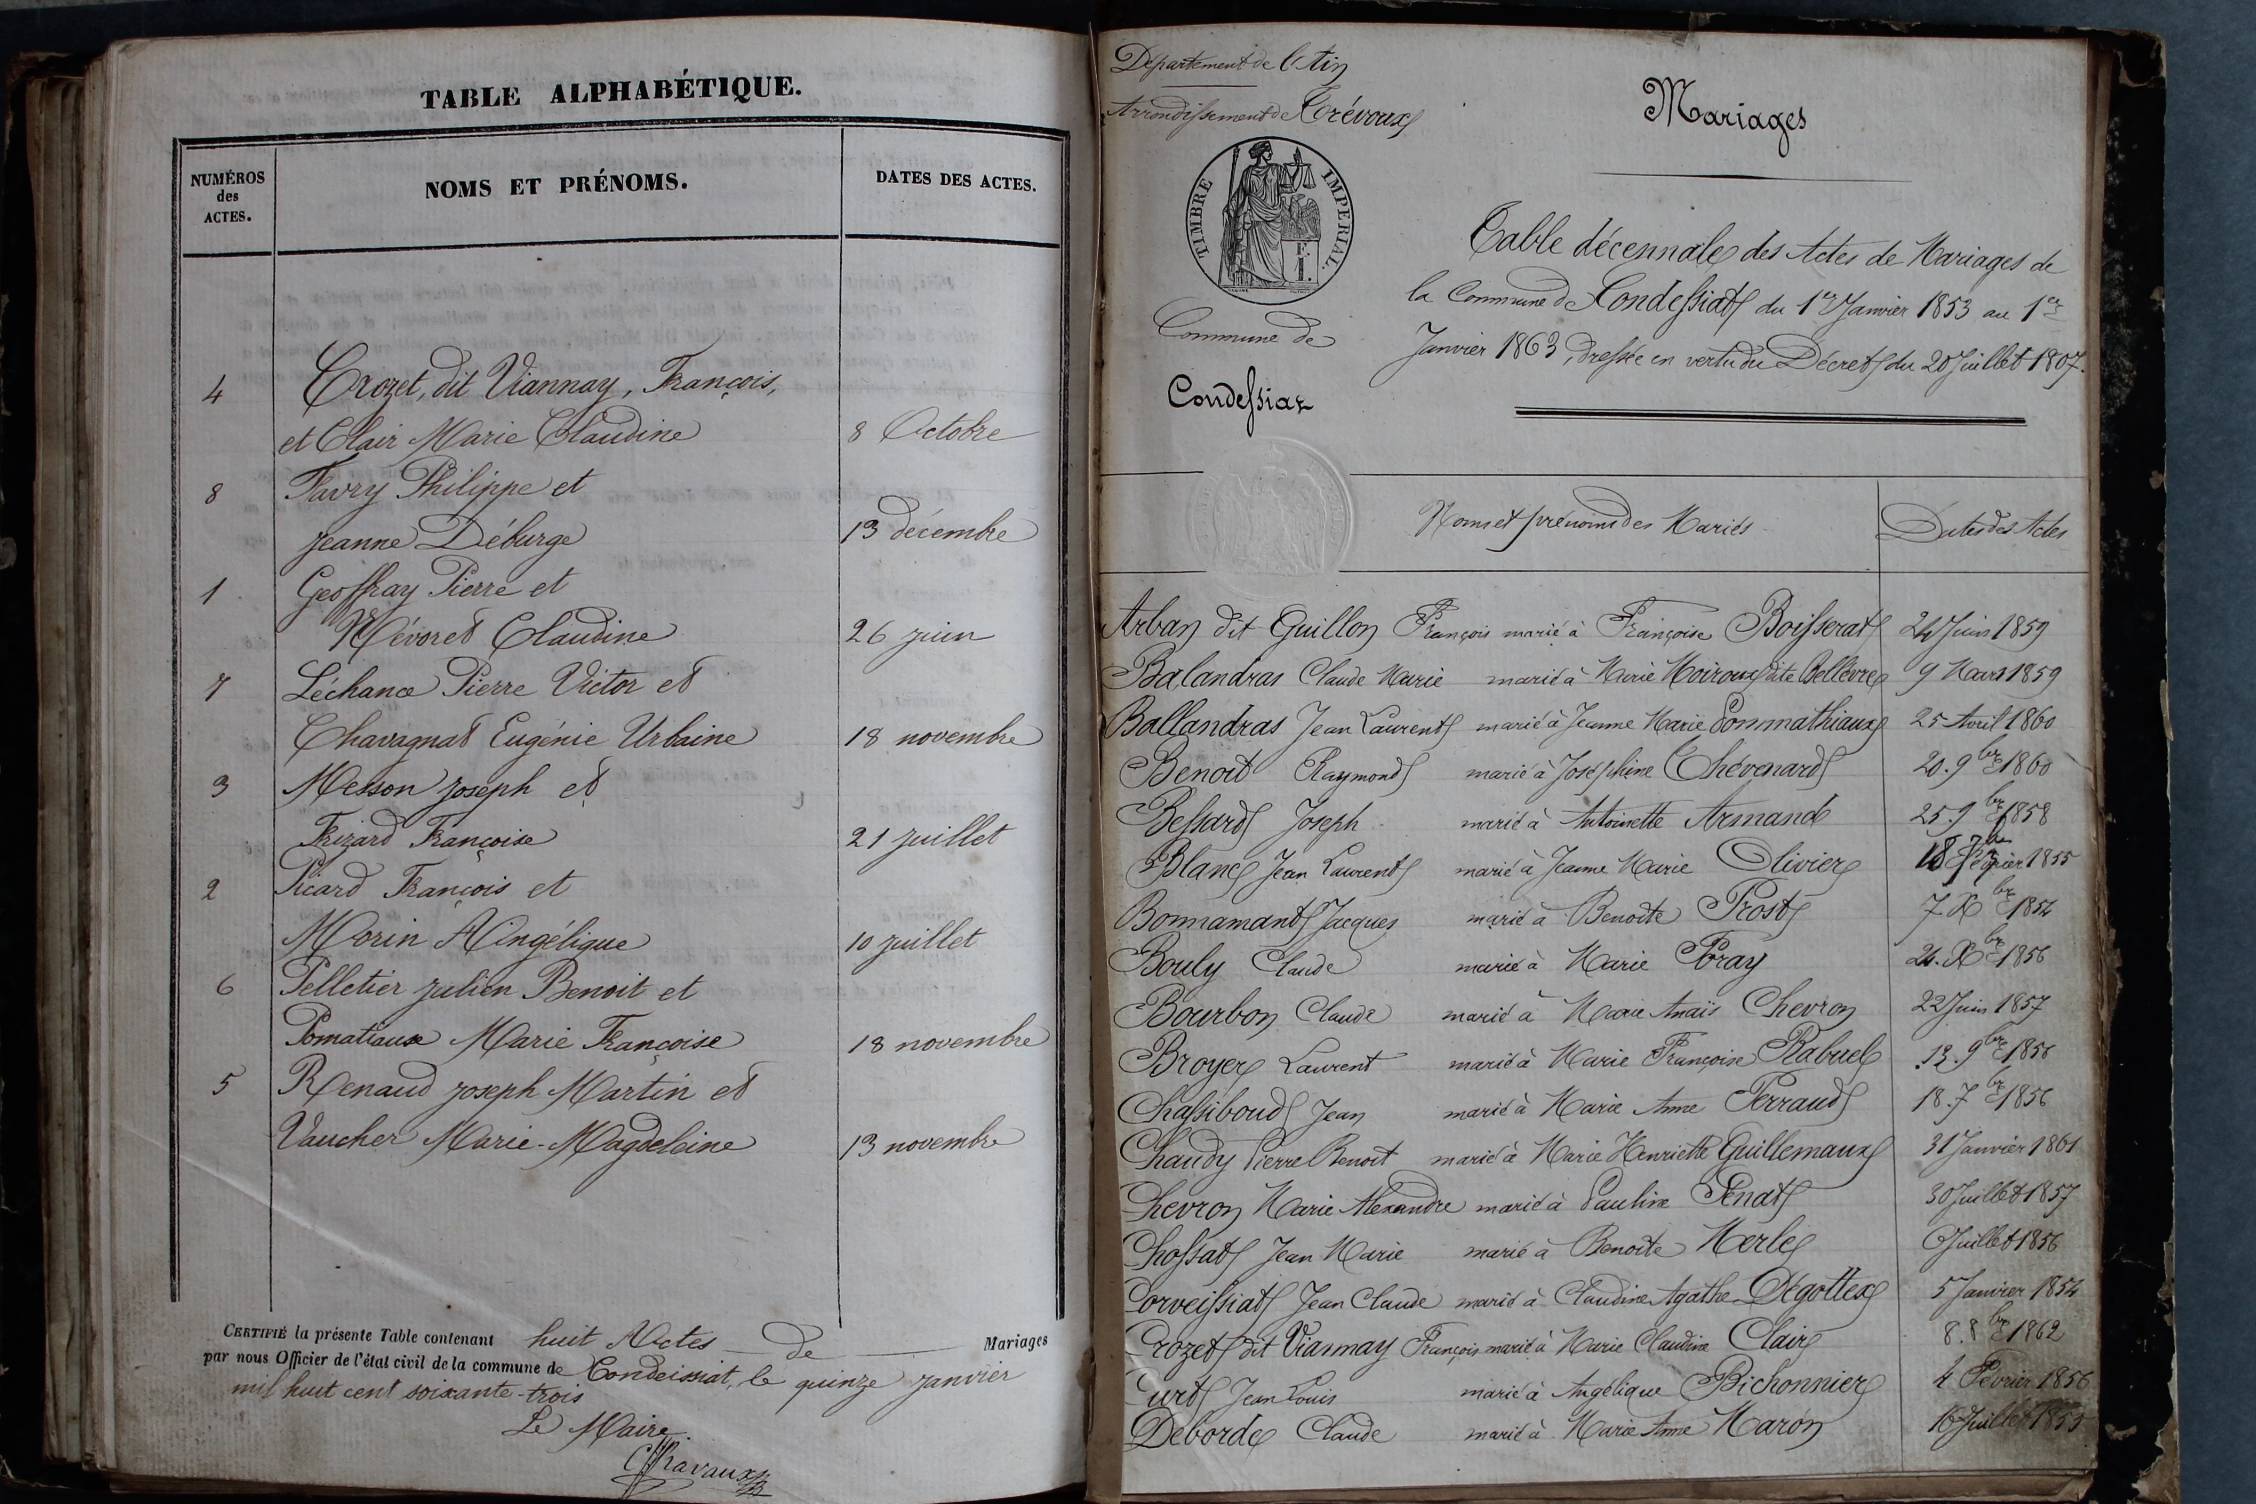 TABLE ALPHABÉTIQUE.
NUMÉROS des ACTES.
NOMS ET PRÉNOMS.
DATES DES ACTES.
4 Crozet, dit Viannay, François,
et Clair Marie Claudine 8 Octobre
8 Favry Philippe et
Jeanne Déburge 13 décembre
1 Geoffray Pierre et
Névoret Claudine 26 juin
7 Léchance Pierre Victor et
Chavagnat Eugénie Urbaine 18 novembre
3 Messon joseph et
Frizard Françoise 21 juillet
2 Picard François et
Morin Angélique 10 juillet
6 Pelletier julien Benoit et
Pomatiaux Marie Françoise 18 novembre
5 Renaud joseph Martin et
Vaucher Marie-Magdeleine 13 novembre
CERTIFIÉ la présente Table contenant huit Actes de Mariages
par nous Officier de l'état civil de la commune de Condeissiat, le quinze janvier
mil huit cent soixante-trois
Le Maire.
Département de l'Ain
Arrondissement de Trévoux
TIMBRE IMPERIAL.
F.
1.
Commune de
Condessiat
Mariages
Table décennale des Actes de Mariages de
la Commune de Condessiat du 1er Janvier 1853 au 1er
Janvier 1863, dressée en vertu du Décret du 20 Juillet 1807.
Noms et prénoms des Mariés Dates des Actes
Arban dit Guillon François marié à Françoise Boisserat 24 Juin 1859
Balandras Claude Marie marié à Marie Moiroux dite Bellevre 9 Mars 1859
Ballandras Jean Laurent marié à Jeanne Marie Pommathiaux 25 Avril 1860
Benoit Raymond marié à Joséphine Chévenard 20. 9bre 1860
Bessard Joseph marié à Antoinette Armand 25. 9bre 1858
Blanc Jean Laurent marié à Jeanne Marie Olivier 18 1855
Bonnamant Jacques marié à Benoite Prost 7 Xbre 1854
Bouly Claude marié à Marie Poray Xbre 1856
Bourbon Claude marié à Marie Anaïs Chevron 22 Juin 1857
Broyer Laurent marié à Marie Françoise Rabuel 9bre
Chassiboud Jean marié à Marie Anne Perraud 18. 7bre 1856
Chaudy Pierre Benoit marié à Marie Henriette Guillemaux 31 Janvier 1861
Chevron Marie Alexandre marié à Pauline Penat 30 Juillet 1857
Chossat Jean Marie marié à Benoite Merle 6 Juillet 1856
Corveissiat Jean Claude marié à Claudine Agathe Dégottex 5 Janvier 1854
Crozet dit Viannay François marié à Marie Claudine Clair 8. 8bre 1862
Curt Jean Louis marié à Angélique Bichonnier 4 Février 1856
Deborde Claude marié à Marie Anne Maron 16 Juillet